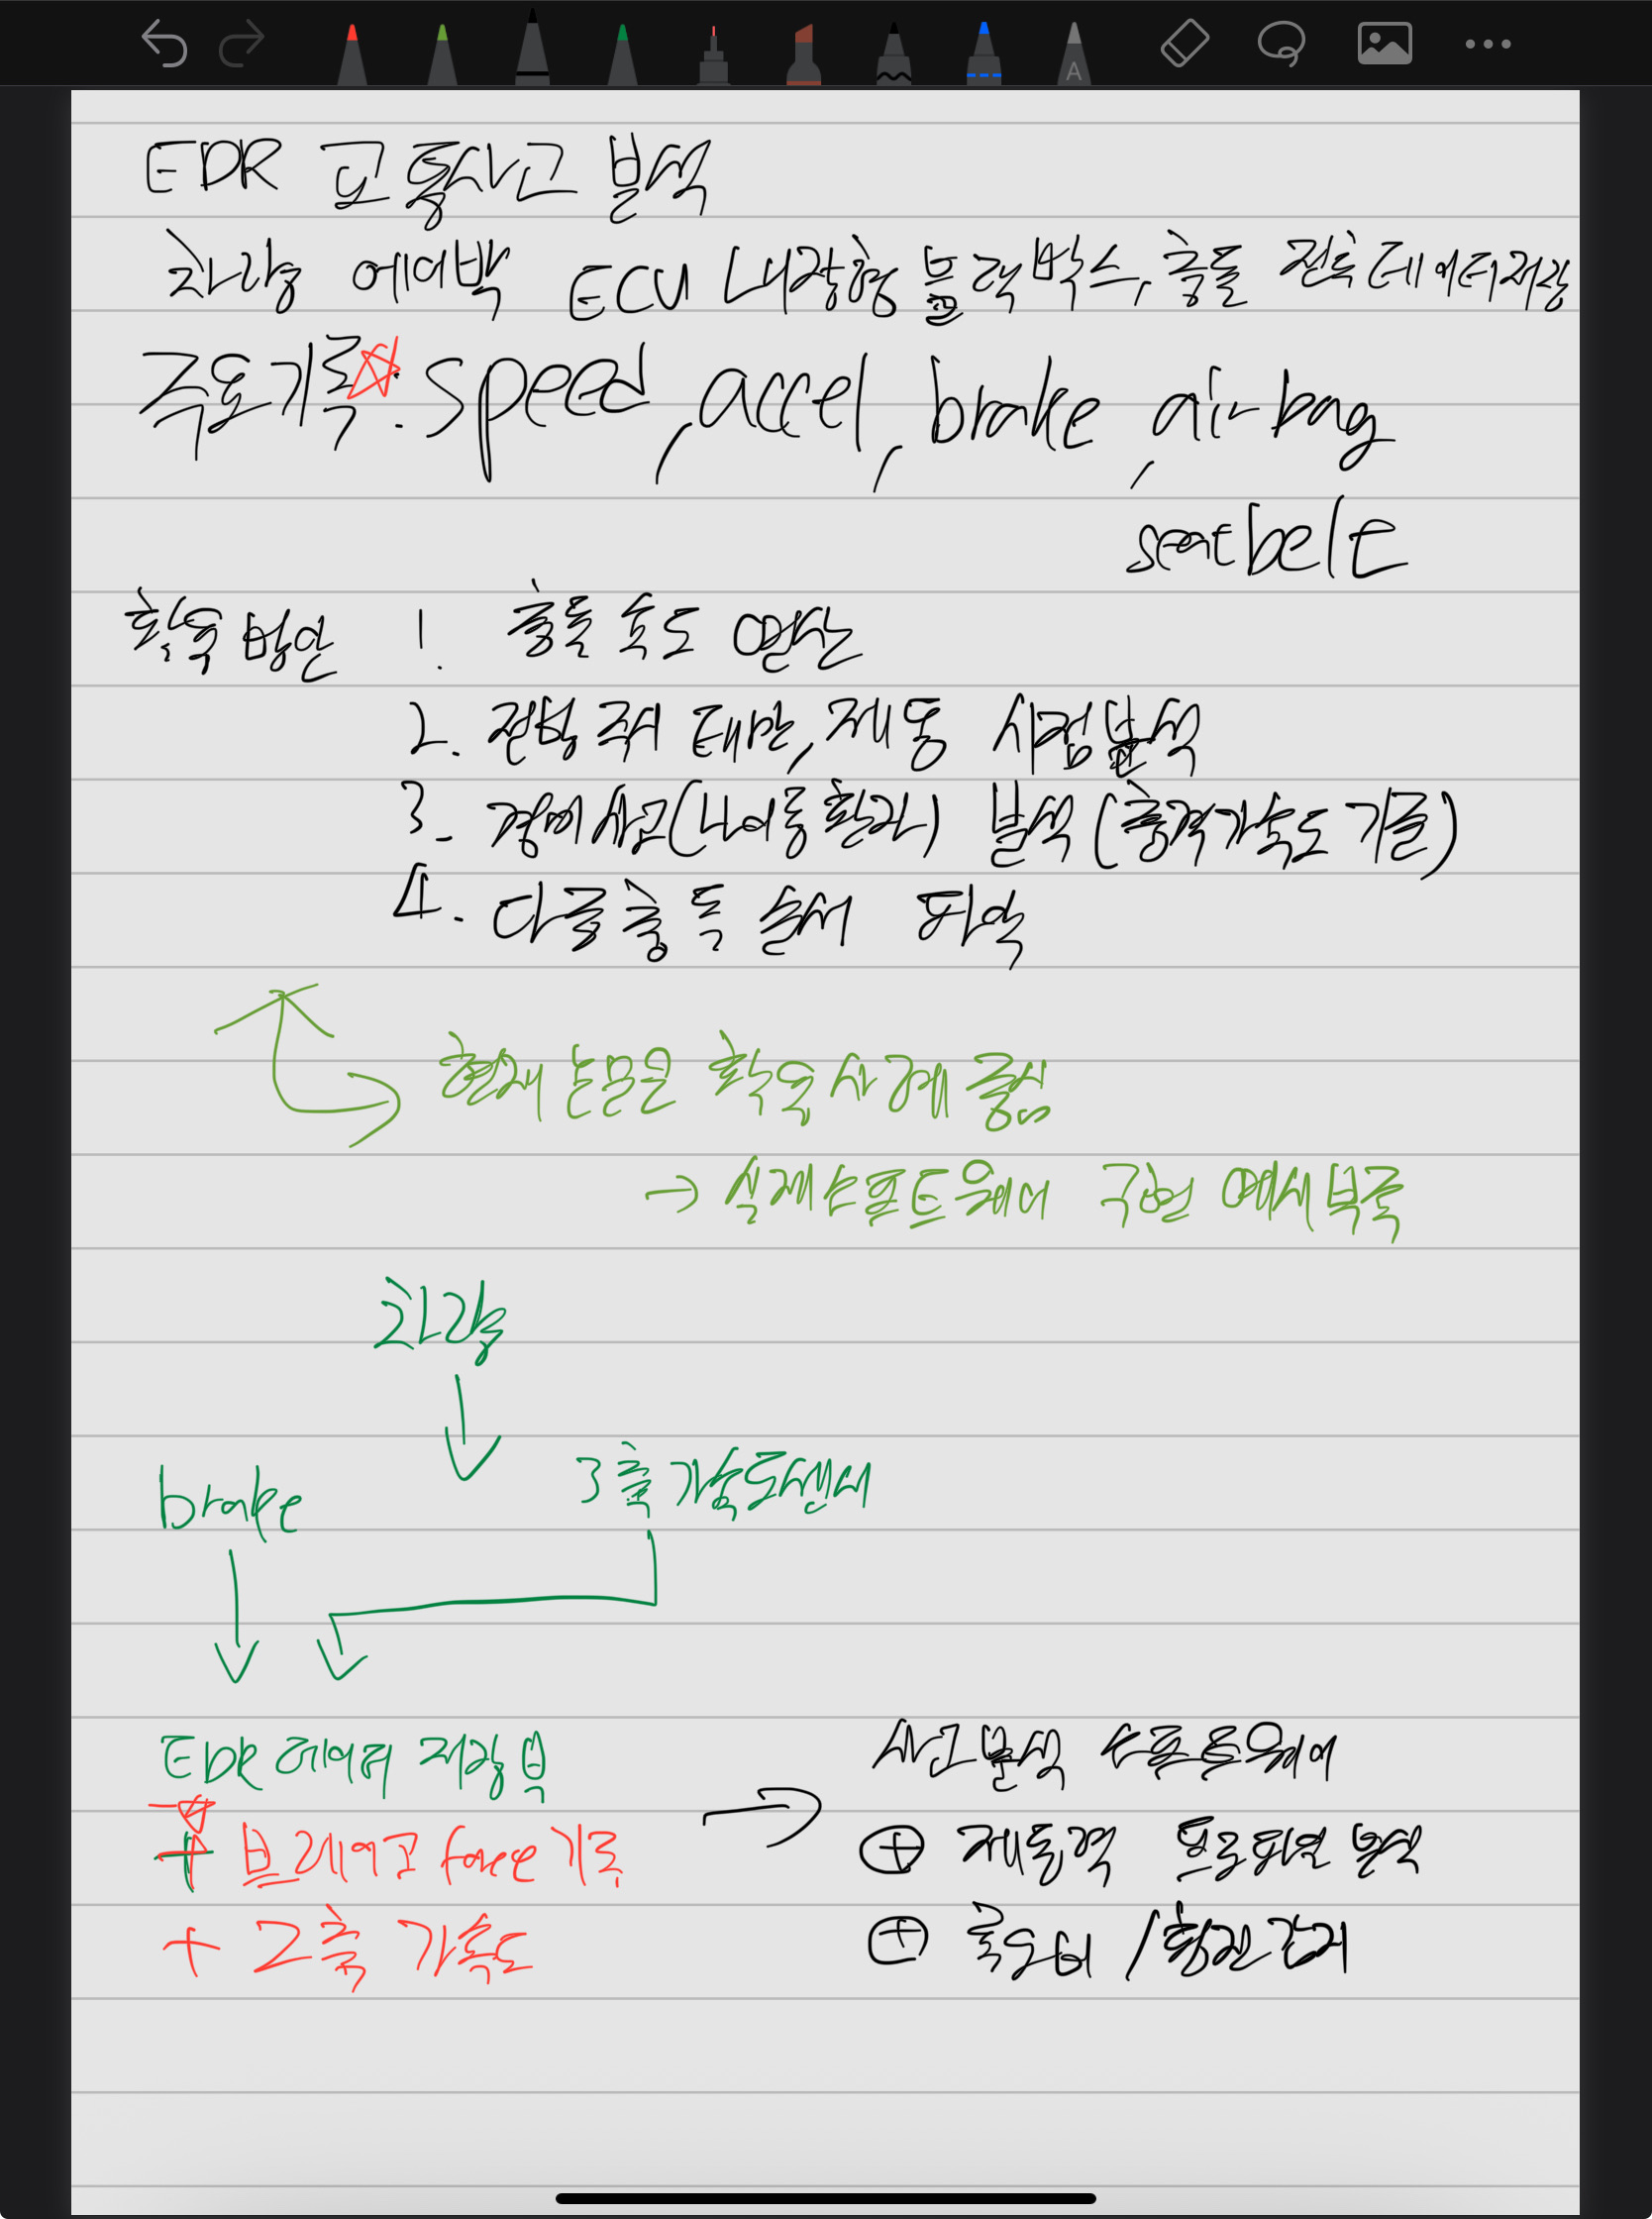 EDR 교통사고 분석
차량 에어백 ECU 내장형 블랙박스, 충돌 전후 데이터저장
주요기록☆: speed, accel, brake, airbag,
seatbelt
활용방안 1. 충돌 속도 연산
2. 전방 주시 태만, 제동 시점 분석
3. 경미사고(나이롱환자) 분석 (충격가속도 기준)
4. 다중충돌 순서 파악
현재 논문은 활용사례 중심
→ 실제 소프트웨어 구현 예시 부족
차량
brake
3축 가속도센서
EDR 데이터 저장부
+ 브레이크 force 기록
+ 2축 가속도
→
사고분석 소프트웨어
⊕ 제동력 프로파일 분석
⊕ /회전감지
A